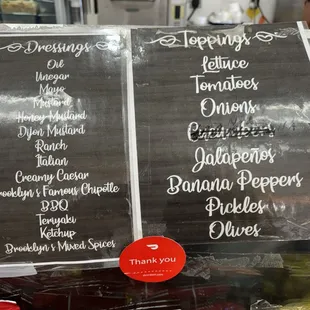 Dressings
Oil
Vinegar
Mayo
Mustard
Honey Mustard
Dijon Mustard
Ranch
Italian
Creamy Caesar
rooklyn's Famous Chipotle
BBQ
Teriyaki
Ketchup
Brooklyn's Mixed Spices
Toppings
Lettuce
Tomatoes
Onions
Jalapeños
Banana Peppers
Pickles
Olives
Thank you